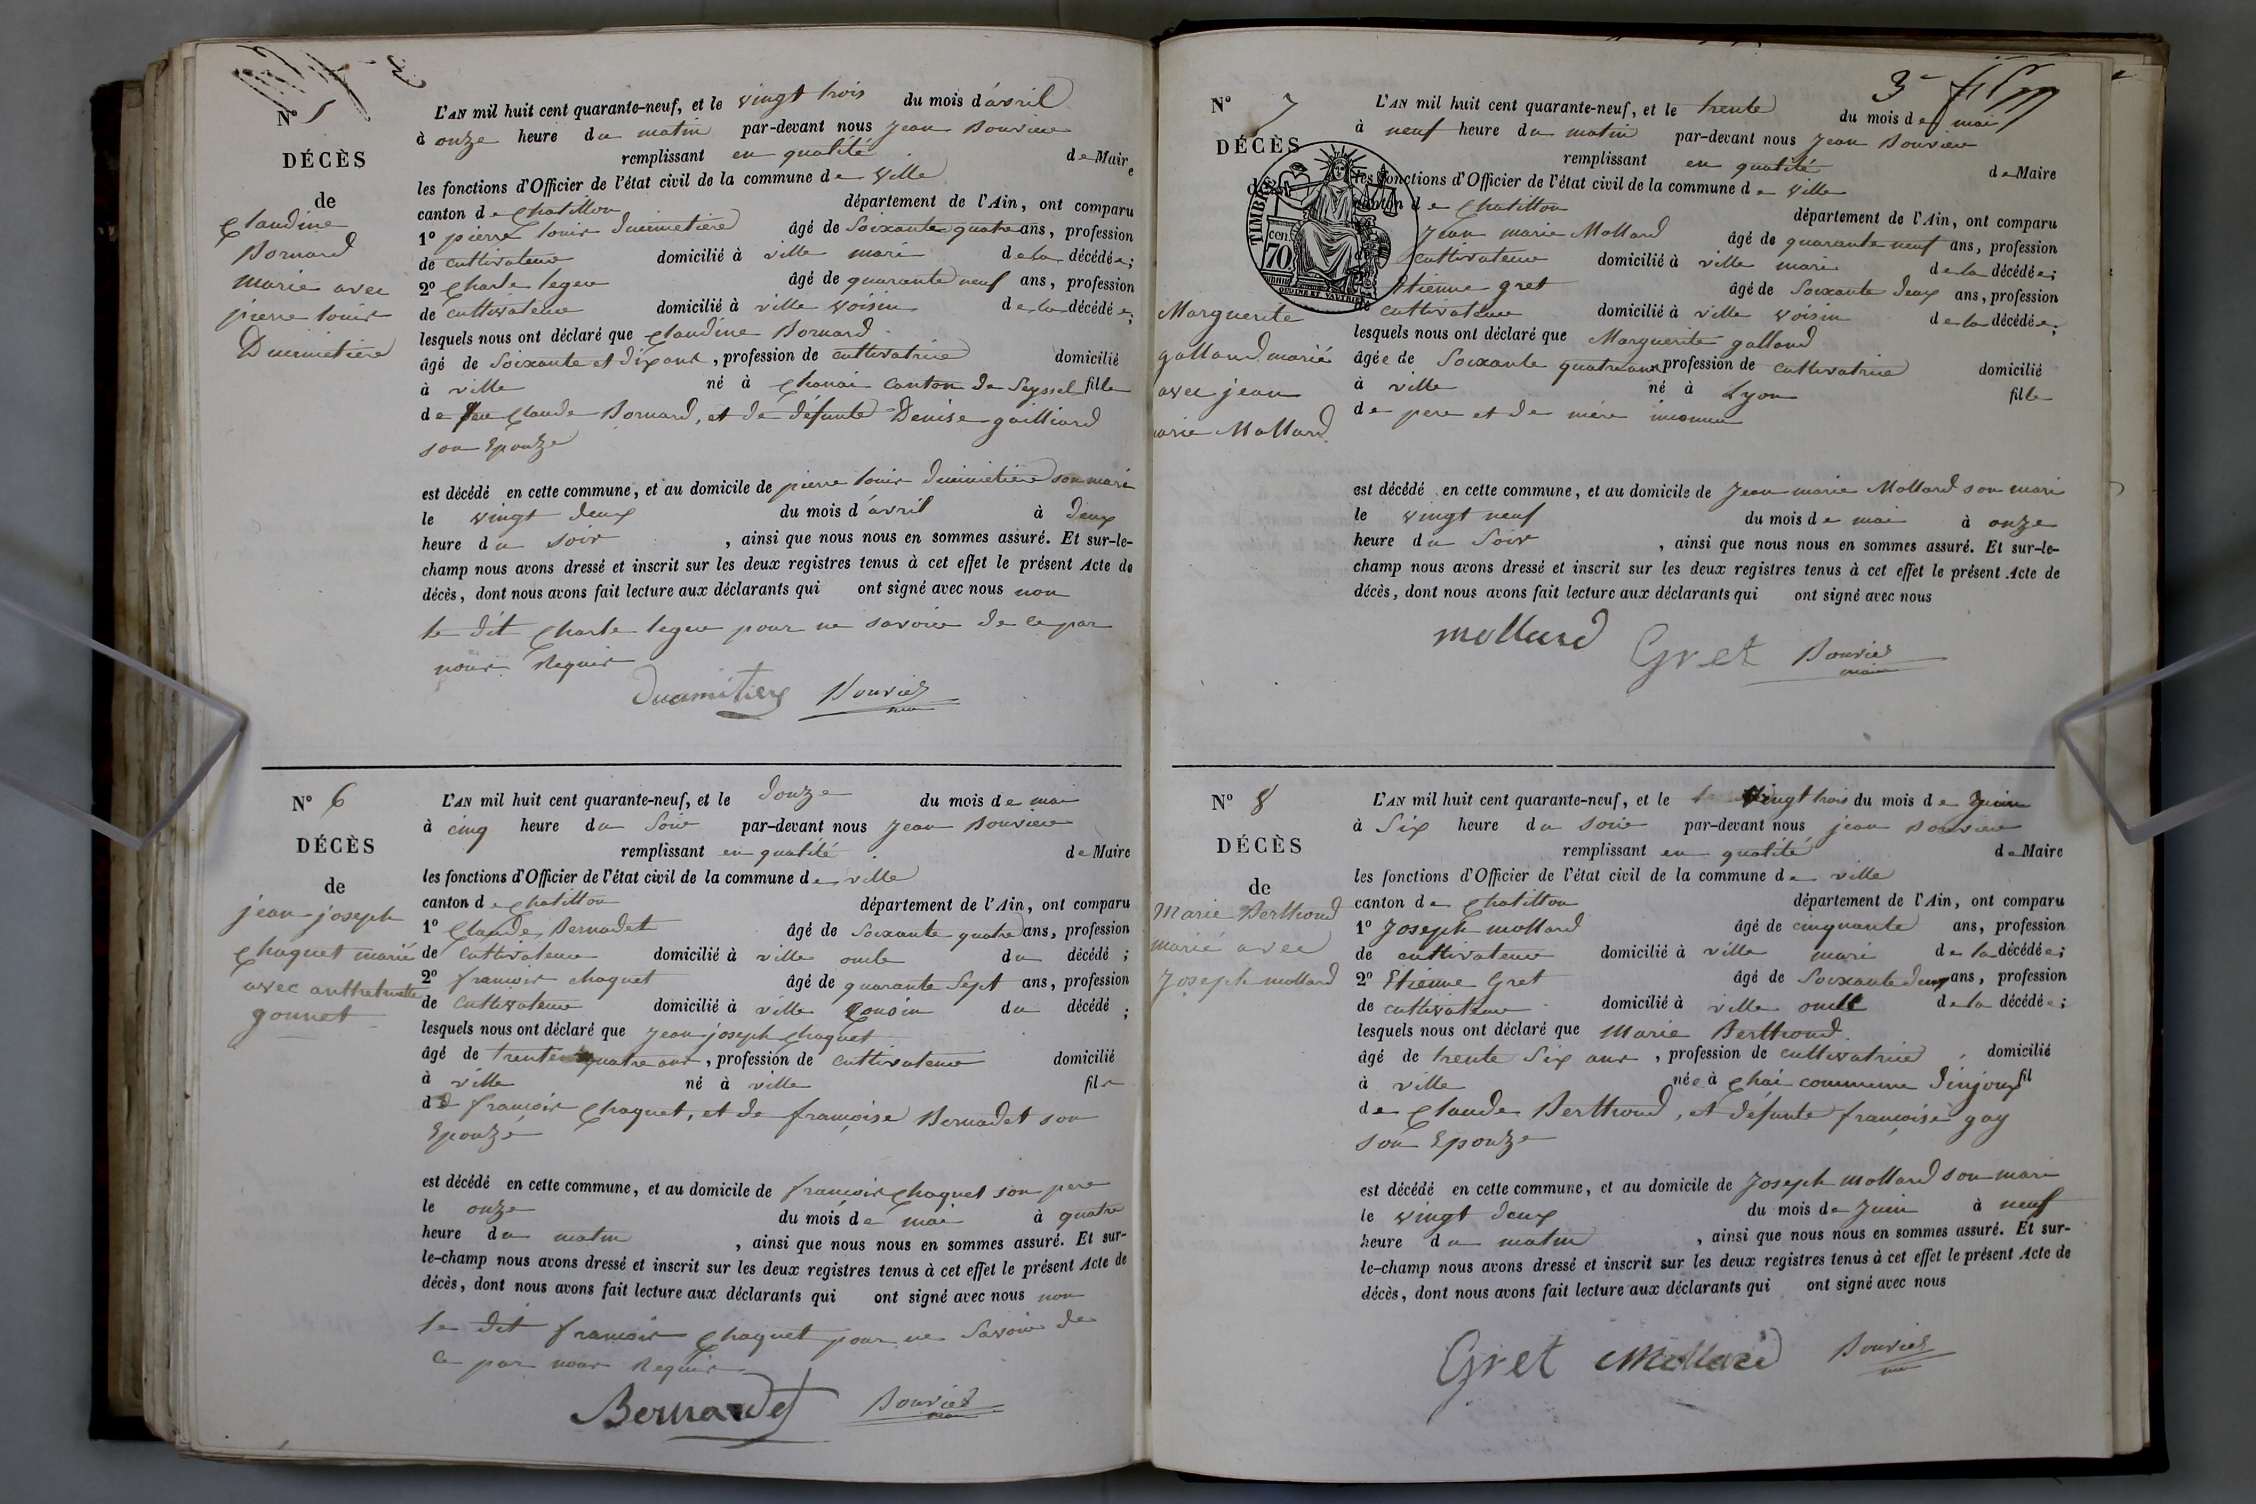 N° 5
DÉCÈS
de
Claudine
Bornard
marie avec
pierre louis
Ducimetière
L'AN mil huit cent quarante-neuf, et le vingt trois du mois d'avril
à onze heure du matin par-devant nous Jean Bouvier
remplissant en qualité de Maire
les fonctions d'Officier de l'état civil de la commune de ville
canton de Chatillon département de l'Ain, ont comparu
1° pierre louis Ducimetière âgé de Soixante quatre ans, profession
de cultivateur domicilié à ville mari de la décédée;
2° Charle leger âgé de quarante neuf ans, profession
de cultivateur domicilié à ville voisin de la décédée;
lesquels nous ont déclaré que Claudine Bornard
âgé de Soixante et dix ans, profession de cultivatrice domicilié
à ville né à Chanai canton de Seyssel fille
de feu Claude Bornard, et de défunte Denise gailliard
son Epouze
est décédé en cette commune, et au domicile de pierre louis Ducimetière son mari
le vingt deux du mois d'avril à deux
heure du soir, ainsi que nous nous en sommes assuré. Et sur-le-
champ nous avons dressé et inscrit sur les deux registres tenus à cet effet le présent Acte de
décès, dont nous avons fait lecture aux déclarants qui ont signé avec nous non
le dit Charle leger pour ne savoir de ce par
nous Requis
Ducimetiere Bouvier
maire
N° 6
DÉCÈS
de
jean joseph
Chaquet marié
avec
gonnet
L'AN mil huit cent quarante-neuf, et le douze du mois de mai
à cinq heure du Soir par-devant nous Jean Bouvier
remplissant en qualité de Maire
les fonctions d'Officier de l'état civil de la commune de ville
canton de Chatillon département de l'Ain, ont comparu
1° Claude Bernadet âgé de Soixante quatre ans, profession
de cultivateur domicilié à ville oncle du décédé;
2° francois chaquet âgé de quarante Sept ans, profession
de Cultivateur domicilié à ville Cousin du décédé;
lesquels nous ont déclaré que Jean joseph Chaquet
âgé de trente quatre ans, profession de Cultivateur domicilié
à ville né à ville fils
de francois Chaquet, et de françoise Bernadet son
Epouzé
est décédé en cette commune, et au domicile de francois Chaquet son pere
le onze du mois de mai à quatre
heure du matin, ainsi que nous nous en sommes assuré. Et sur-
le-champ nous avons dressé et inscrit sur les deux registres tenus à cet effet le présent Acte de
décès, dont nous avons fait lecture aux déclarants qui ont signé avec nous non
le dit francois Chaquet pour ne Savoir de
ce par nous Requis
Bernardet Bouvier
maire
3e
N° 7
DÉCÈS
de
TIMBRE
cen
70
Marguerite
galland marié
avec jean
marie Mollard
L'AN mil huit cent quarante-neuf, et le trente du mois de mai
à neuf heure du matin par-devant nous Jean Bouvier
remplissant en qualité de Maire
les fonctions d'Officier de l'état civil de la commune de ville
canton de Chatillon département de l'Ain, ont comparu
Jean marie Mollard âgé de quarante neuf ans, profession
cultivateur domicilié à ville mari de la décédée;
Etienne gret âgé de Soixante deux ans, profession
de cultivateur domicilié à ville voisin de la décédée;
lesquels nous ont déclaré que Marguerite galland
âgée de Soixante quatre ans profession de cultivatrice domicilié
à ville né à Lyon fille
de pere et de mére inconnu
est décédé en cette commune, et au domicile de Jean marie Mollard son mari
le vingt neuf du mois de mai à onze
heure du Soir, ainsi que nous nous en sommes assuré. Et sur-le-
champ nous avons dressé et inscrit sur les deux registres tenus à cet effet le présent Acte de
décès, dont nous avons fait lecture aux déclarants qui ont signé avec nous
mollard Gret Bouvier
maire
N° 8
DÉCÈS
de
Marie Berthoud
marié avec
Joseph mollard
L'AN mil huit cent quarante-neuf, et le vingt trois du mois de Juin
à Six heure du soir par-devant nous jean Bouvier
remplissant en qualité de Maire
les fonctions d'Officier de l'état civil de la commune de ville
canton de Chatillon département de l'Ain, ont comparu
1° Joseph mollard âgé de cinquante ans, profession
de cultivateur domicilié à ville mari de la décédée;
2° Etienne Gret âgé de Soixante deux ans, profession
de cultivateur domicilié à ville oncle de la décédée;
lesquels nous ont déclaré que Marie Berthoud
âgé de trente Six ans, profession de cultivatrice, domicilié
à ville née à Chai commune d'injoux fil
de Claude Berthoud, et défunte françoise gay
son Epouze
est décédé en cette commune, et au domicile de Joseph Mollard son mari
le vingt deux du mois de Juin à neuf
heure du matin, ainsi que nous nous en sommes assuré. Et sur-
le-champ nous avons dressé et inscrit sur les deux registres tenus à cet effet le présent Acte de
décès, dont nous avons fait lecture aux déclarants qui ont signé avec nous
Gret Mollard Bouvier